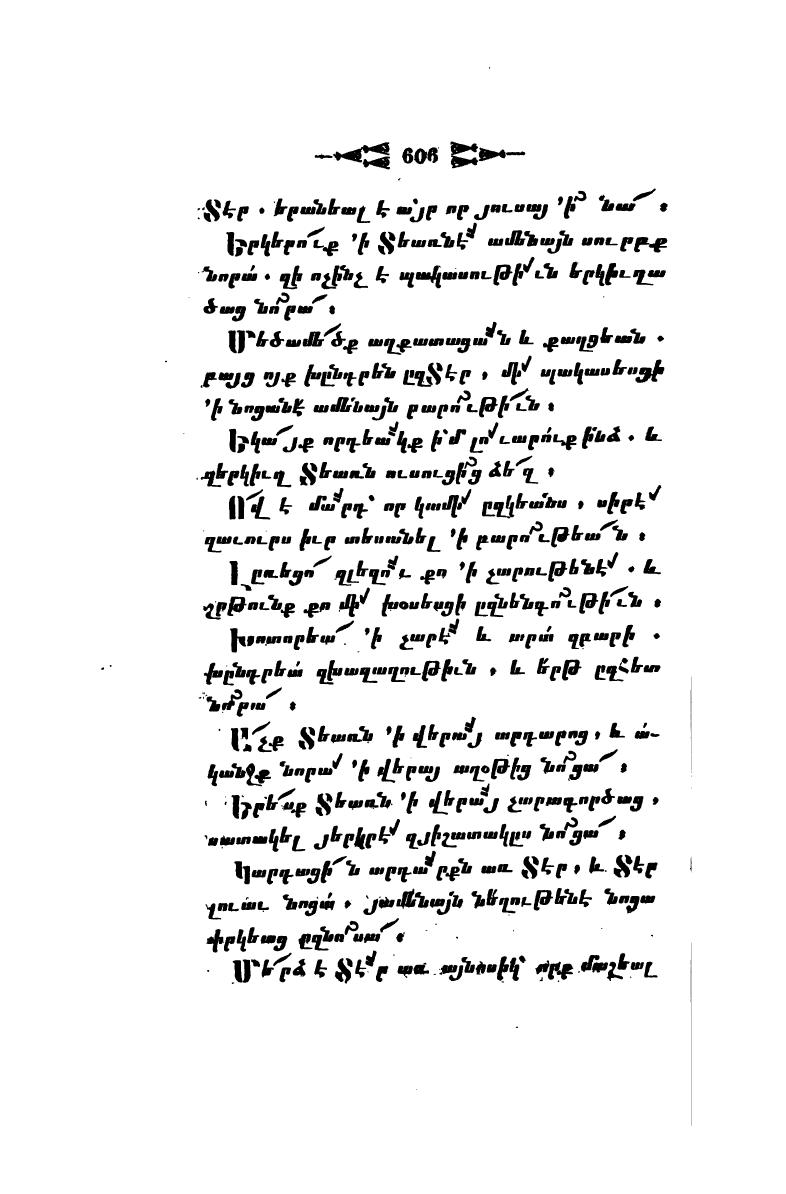 606
Տէր . երանեալ է այր որ յուսայ ՚ի նա ։
Երկերուք ՚ի Տեառնէ ամենայն սուրբք
նորա . զի ոչինչ է պակասութիւն երկիւղա
ծաց նորա ։
Մեծամեծք աղքատացան և քաղցեան .
բայց ոյք խընդրեն ըզՏէր , մի պակասեսցի
՚ի նոցանէ ամենայն բարութիւն ։
Եկայք որդեակք իմ լուարուք ինձ . և
զերկիւղ Տեառն ուսուցից ձեզ ։
Ով է մարդ՝ որ կամի ըզկեանս , սիրէ
զաւուրս իւր տեսանել ՚ի բարութեան ։
Լըռեցո զլեզու քո ՚ի չարութենէ . և
շրթունք քո մի խօսեսցի ըզնենգութիւն ։
Խոտորեա ՚ի չարէ և արա զբարի .
խընդրեա զխաղաղութիւն , և երթ ըզհետ
նորա ։
Աչք Տեառն ՚ի վերայ արդարոց , և ա-
կանջք նորա ՚ի վերայ աղօթից նոցա ։
Երեսք Տեառն ՚ի վերայ չարագործաց ,
սատակել յերկրէ զյիշատակըս նոցա ։
Կարդացին արդարքն առ Տէր , և Տէր
լուաւ նոցա , յամենայն նեղութենէ նոցա
փրկեաց ըզնոսա ։
Մերձ է Տէր առ այնոսիկ՝ որք մաշեալ